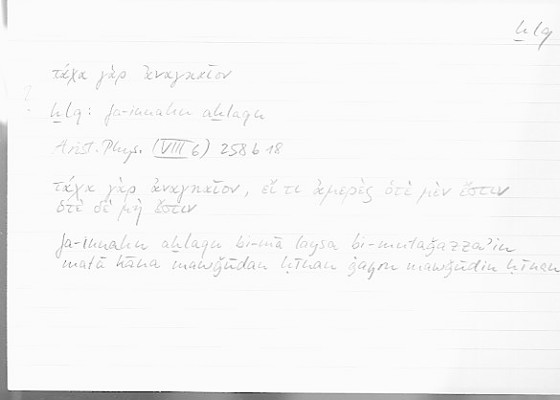 ḫlq
τάχα γὰρ ἀναγκαῖον
ḫlq: fa-innahu aḫlaqu
Arist. Phys. (VIII 6) 258 b 18
τάχα γὰρ ἀναγκαῖον, εἴ τι ἀμερὲς ὁτὲ μὲν ἔστιν
ὁτὲ δὲ μὴ ἔστιν
fa-innahu aḫlaqu bi-mā laysa bi-mutaǧazzaʾin
matā kāna mawǧūdan ḥīnan ġayra mawǧūdin ḥīnan